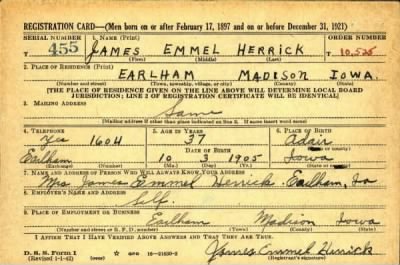 REGISTRATION CARD—(Men born on or after February 17, 1897 and on or before December 31, 1921)
SERIAL NUMBER 1. Name (Print) ORDER NUMBER
455 JAMES EMMEL HERRICK T 10,525
(First) (Middle) (Last)
2. Place of Residence (Print)
EARLHAM MADISON IOWA.
(Number and street) (Town, township, village, or city) (County) (State)
[THE PLACE OF RESIDENCE GIVEN ON THE LINE ABOVE WILL DETERMINE LOCAL BOARD
JURISDICTION; LINE 2 OF REGISTRATION CERTIFICATE WILL BE IDENTICAL]
3. Mailing Address
Same
[Mailing address if other than place indicated on line 2. If same insert word same]
4. Telephone 5. Age in Years 6. Place of Birth
Yes 1604 37 Adair
Date of Birth (Town or county)
Earlham 10 3 1905 Iowa
(Exchange) (Number) (Mo.) (Day) (Yr.) (State or country)
7. Name and Address of Person Who Will Always Know Your Address
Mrs James Emmel Herrick. Earlham, Ia
8. Employer's Name and Address
Self.
9. Place of Employment or Business
Earlham Madison Iowa
(Number and street or R. F. D. number) (Town) (County) (State)
I Affirm That I Have Verified Above Answers and That They Are True.
D. S. S. Form 1
(Revised 1-1-42) (over) 16—21630-2
James Emmel Herrick
(Registrant's signature)